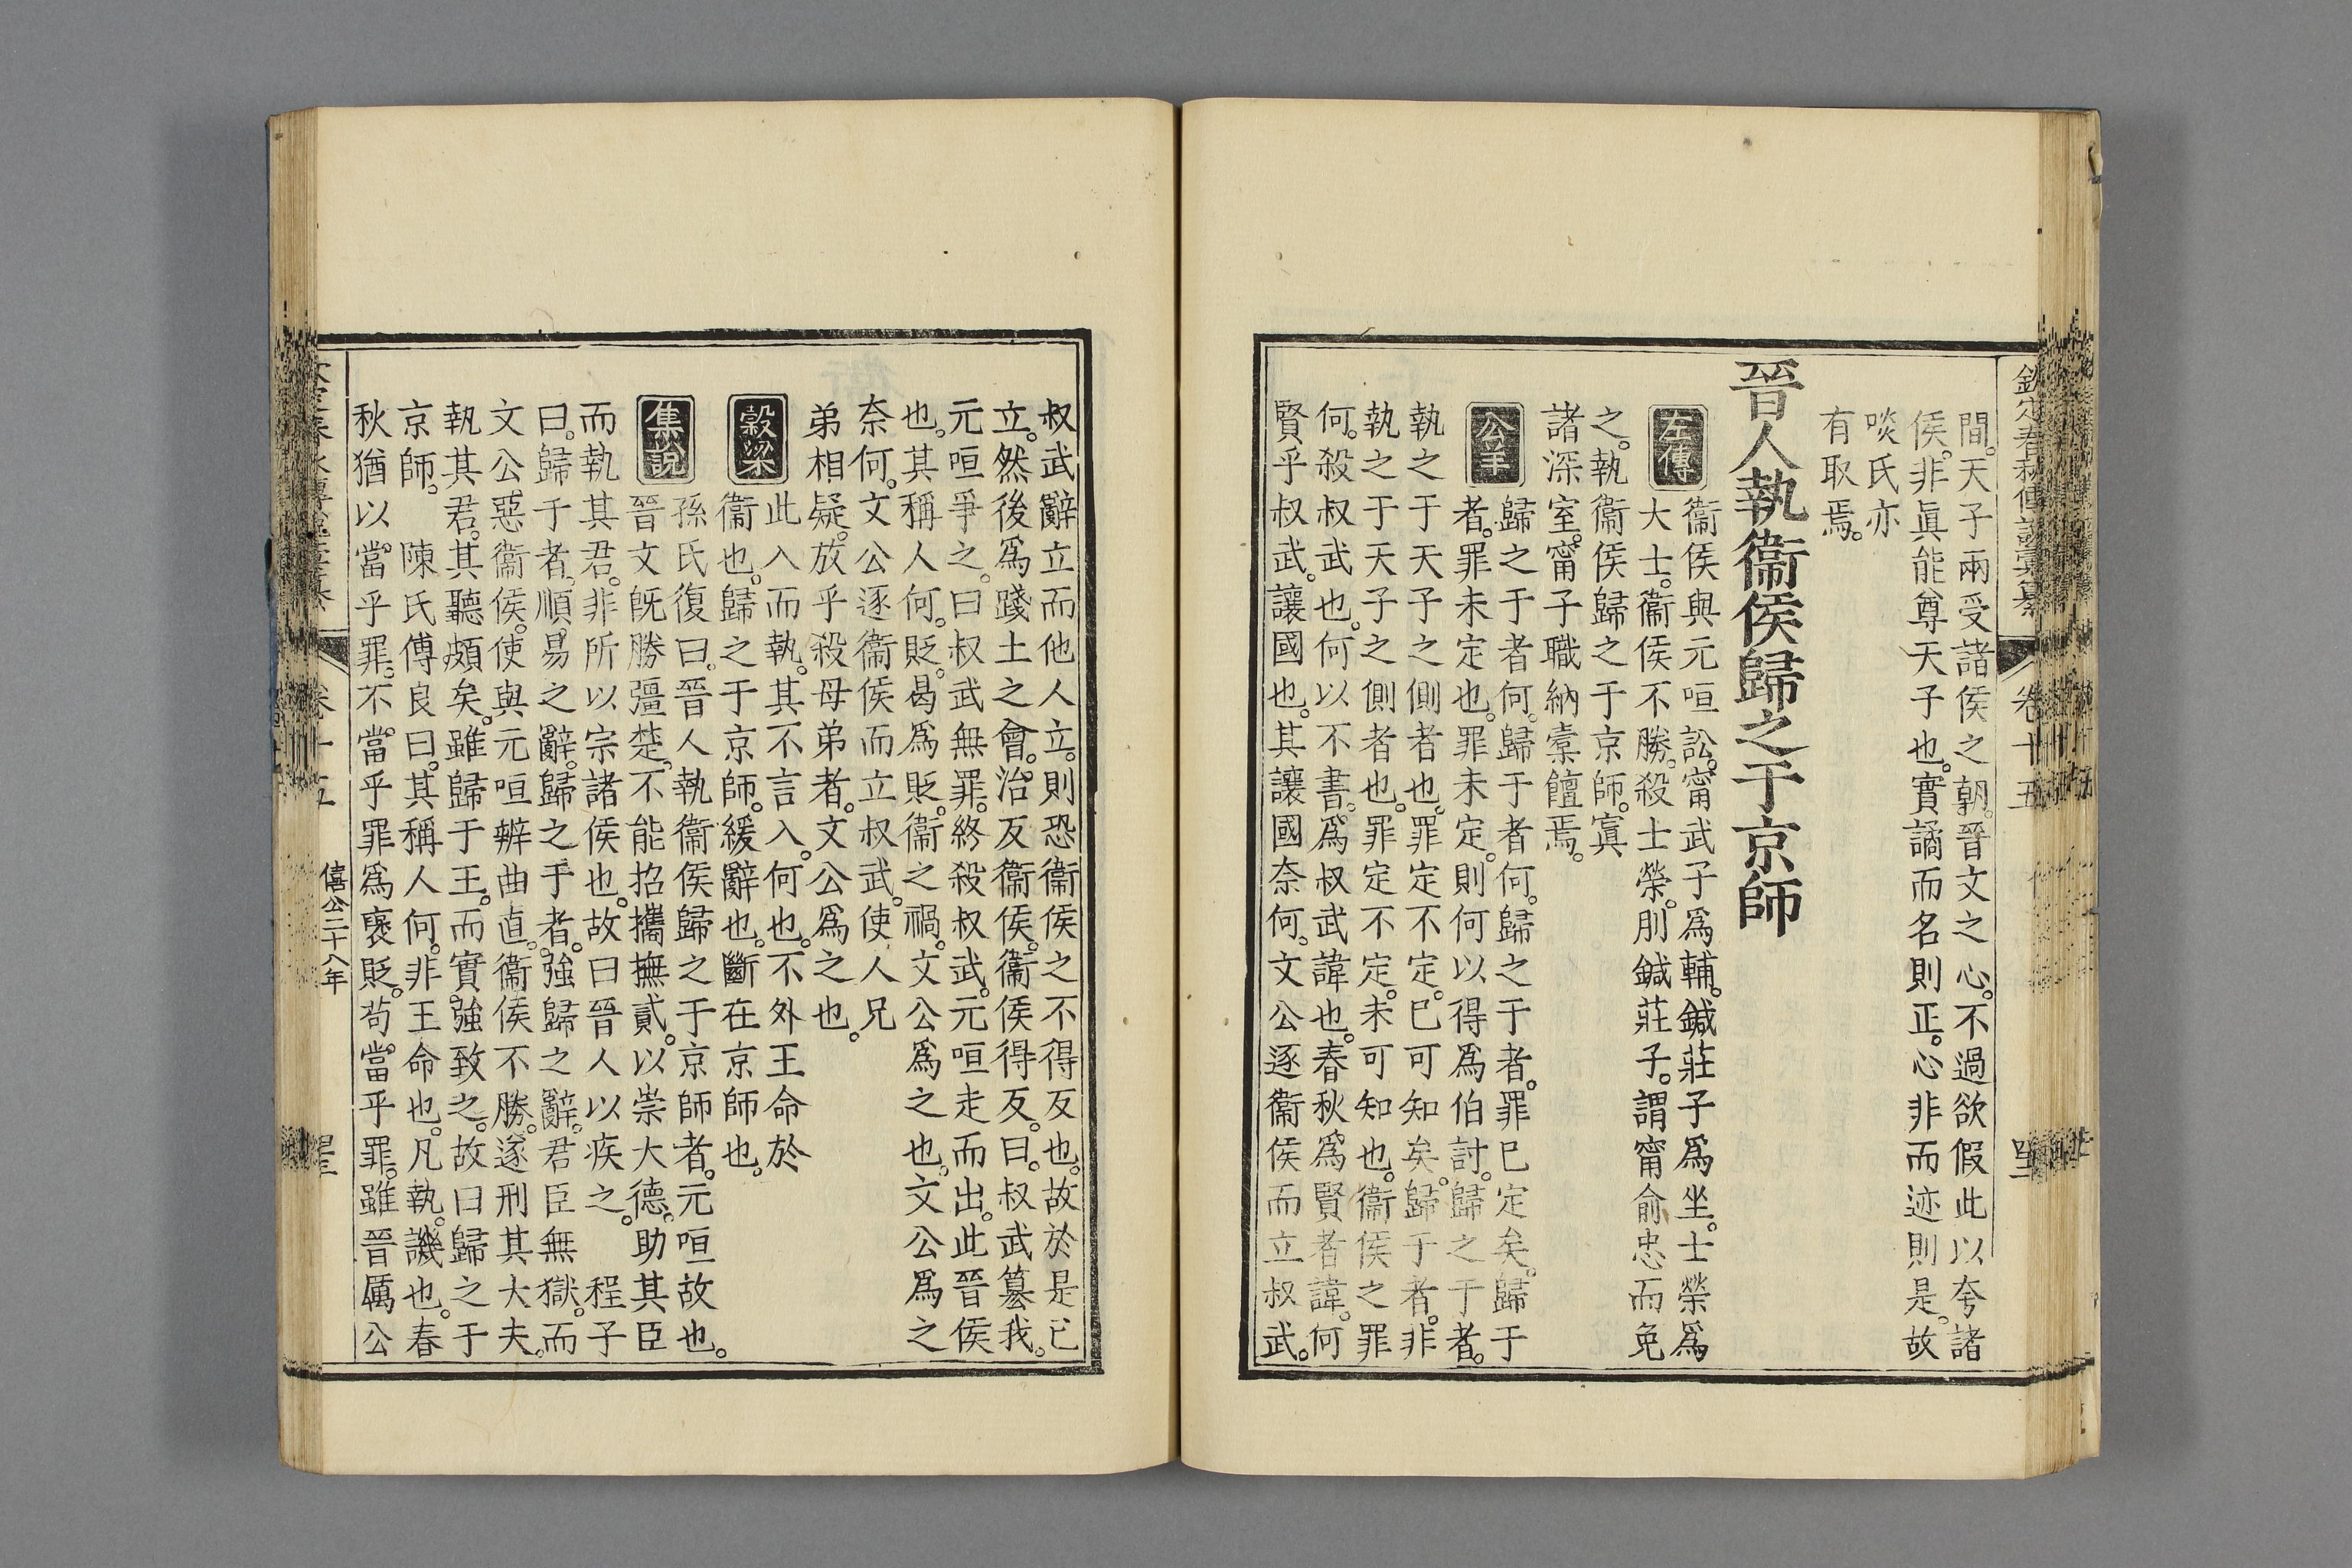 欽定春秋傳說彙纂 卷十五
間。天子兩受諸侯之朝。晉文之心。不過欲假此以夸諸
侯。非眞能尊天子也。實譎而名則正。心非而迹則是。故
啖氏亦
有取焉。
晉人執衞侯歸之于京師
左傳
衞侯與元咺訟。甯武子爲輔。鍼莊子爲坐。士榮爲
大士。衞侯不勝。殺士榮。刖鍼莊子。謂甯俞忠而免
之。執衞侯歸之于京師。寘
諸深室。甯子職納橐饘焉。
公羊
歸之于者何。歸于者何。歸之于者。罪已定矣。歸于
者。罪未定也。罪未定。則何以得爲伯討。歸之于者。
執之于天子之側者也。罪定不定。已可知矣。歸于者。非
執之于天子之側者也。罪定不定。未可知也。衞侯之罪
何。殺叔武也。何以不書。爲叔武諱也。春秋爲賢者諱。何
賢乎叔武。讓國也。其讓國奈何。文公逐衞侯而立叔武。
叔武辭立而他人立。則恐衞侯之不得反也。故於是已
立。然後爲踐土之會。治反衞侯。衞侯得反。曰。叔武簒我。
元咺爭之。曰。叔武無罪。終殺叔武。元咺走而出。此晉侯
也。其稱人何。貶。曷爲貶。衞之禍。文公爲之也。文公爲之
奈何。文公逐衞侯而立叔武。使人兄
弟相疑。放乎殺母弟者。文公爲之也。
穀梁
此入而執。其不言入。何也。不外王命於
衞也。歸之于京師。緩辭也。斷在京師也。
集說
孫氏復曰。晉人執衞侯歸之于京師者。元咺故也。
晉文旣勝彊楚。不能招攜撫貳。以崇大德。助其臣
而執其君。非所以宗諸侯也。故曰晉人以疾之。 程子
曰。歸于者。順易之辭。歸之于者。強歸之辭。君臣無獄。而
文公惡衞侯。使與元咺辨曲直。衞侯不勝。遂刑其大夫。
執其君。其聽頗矣。雖歸于王。而實強致之。故曰歸之于
京師。 陳氏傅良曰。其稱人何。非王命也。凡執。譏也。春
秋猶以當乎罪。不當乎罪爲褒貶。苟當乎罪。雖晉厲公
僖公二十八年